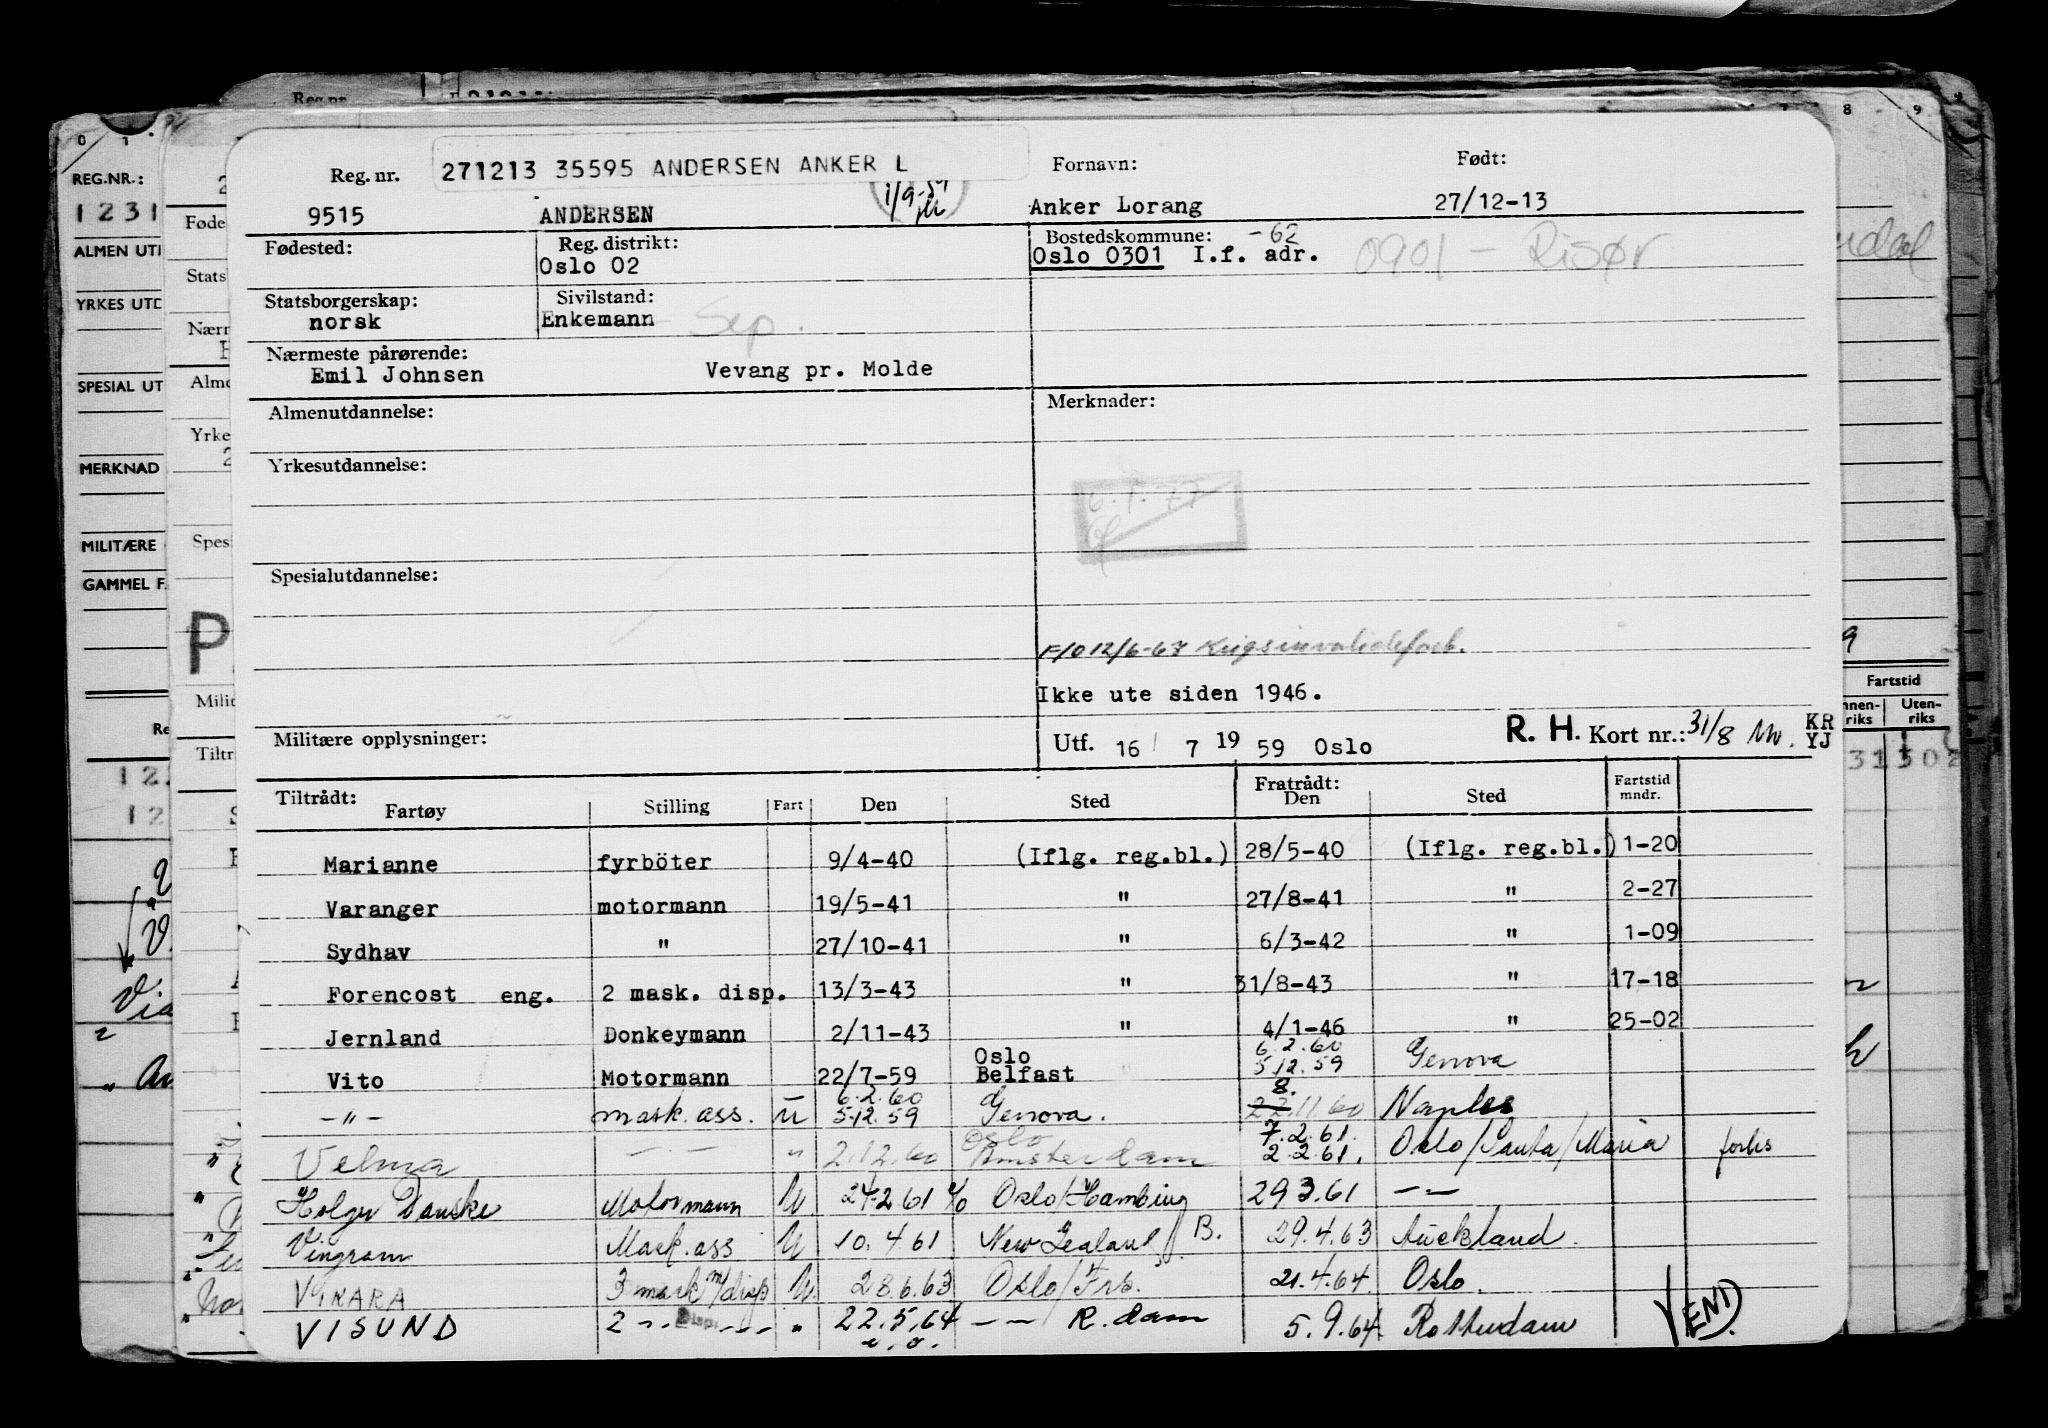 Reg. nr. 271213 35595 ANDERSEN ANKER L Fornavn: Født:
9515 ANDERSEN 1/9-59 Anker Lorang 27/12-13
Fødested: Reg. distrikt: Bostedskommune: -62
Oslo 02 Oslo 0301 I.f. adr. 0901 - Risør
Statsborgerskap: Sivilstand:
norsk Enkemann Sep.
Nærmeste pårørende:
Emil Johnsen Vevang pr. Molde
Almenutdannelse: Merknader:
Yrkesutdannelse:
6.1.77
Spesialutdannelse:
F/O 12/6-67 Krigsinvalideforb.
Ikke ute siden 1946.
Militære opplysninger: Utf. 16 / 7 19 59 Oslo R. H. Kort nr.: 31/8 KR
YJ
Tiltrådt: Fratrådt: Fartstid
Fartøy Stilling Fart Den Sted Den Sted mndr.
Marianne fyrböter 9/4-40 (Iflg. reg.bl.) 28/5-40 (Iflg. reg.bl.) 1-20
Varanger motormann 19/5-41 " 27/8-41 " 2-27
Sydhav " 27/10-41 " 6/3-42 " 1-09
Forencost eng. 2 mask. disp. 13/3-43 " 31/8-43 " 17-18
Jernland Donkeymann 2/11-43 " 4/1-46 " 25-02
Oslo 6.2.60
Vito Motormann 22/7-59 Belfast 5.12.59 Genova
6.2.60 8.
-"- mask. ass. U 5.12.59 Genova. 22.11.60 Naples
Oslo 7.2.61.
Velma -"- " 2.12.60 Amsterdam 2.2.61. Oslo/Santa/Maria forlis
Holger Danske Motormann U 24.2.61 Oslo/Hamburg 29.3.61 -"-
Vingram Mask. ass U 10.4.61 New Zealand B. 29.4.63 Auckland.
VIKARA 3 mask m/disp U. 28.6.63 Oslo/Frb. 21.4.64 Oslo.
VISUND 2 -"- Disp. -"- " 22.5.64 -"- R.dam 5.9.64. Rotterdam VEND.
REG.NR.:
ALMEN UTI
YRKES UTD
SPESIAL UT
MERKNAD
MILITÆRE
GAMMEL F.
Fartstid
Uten-
riks